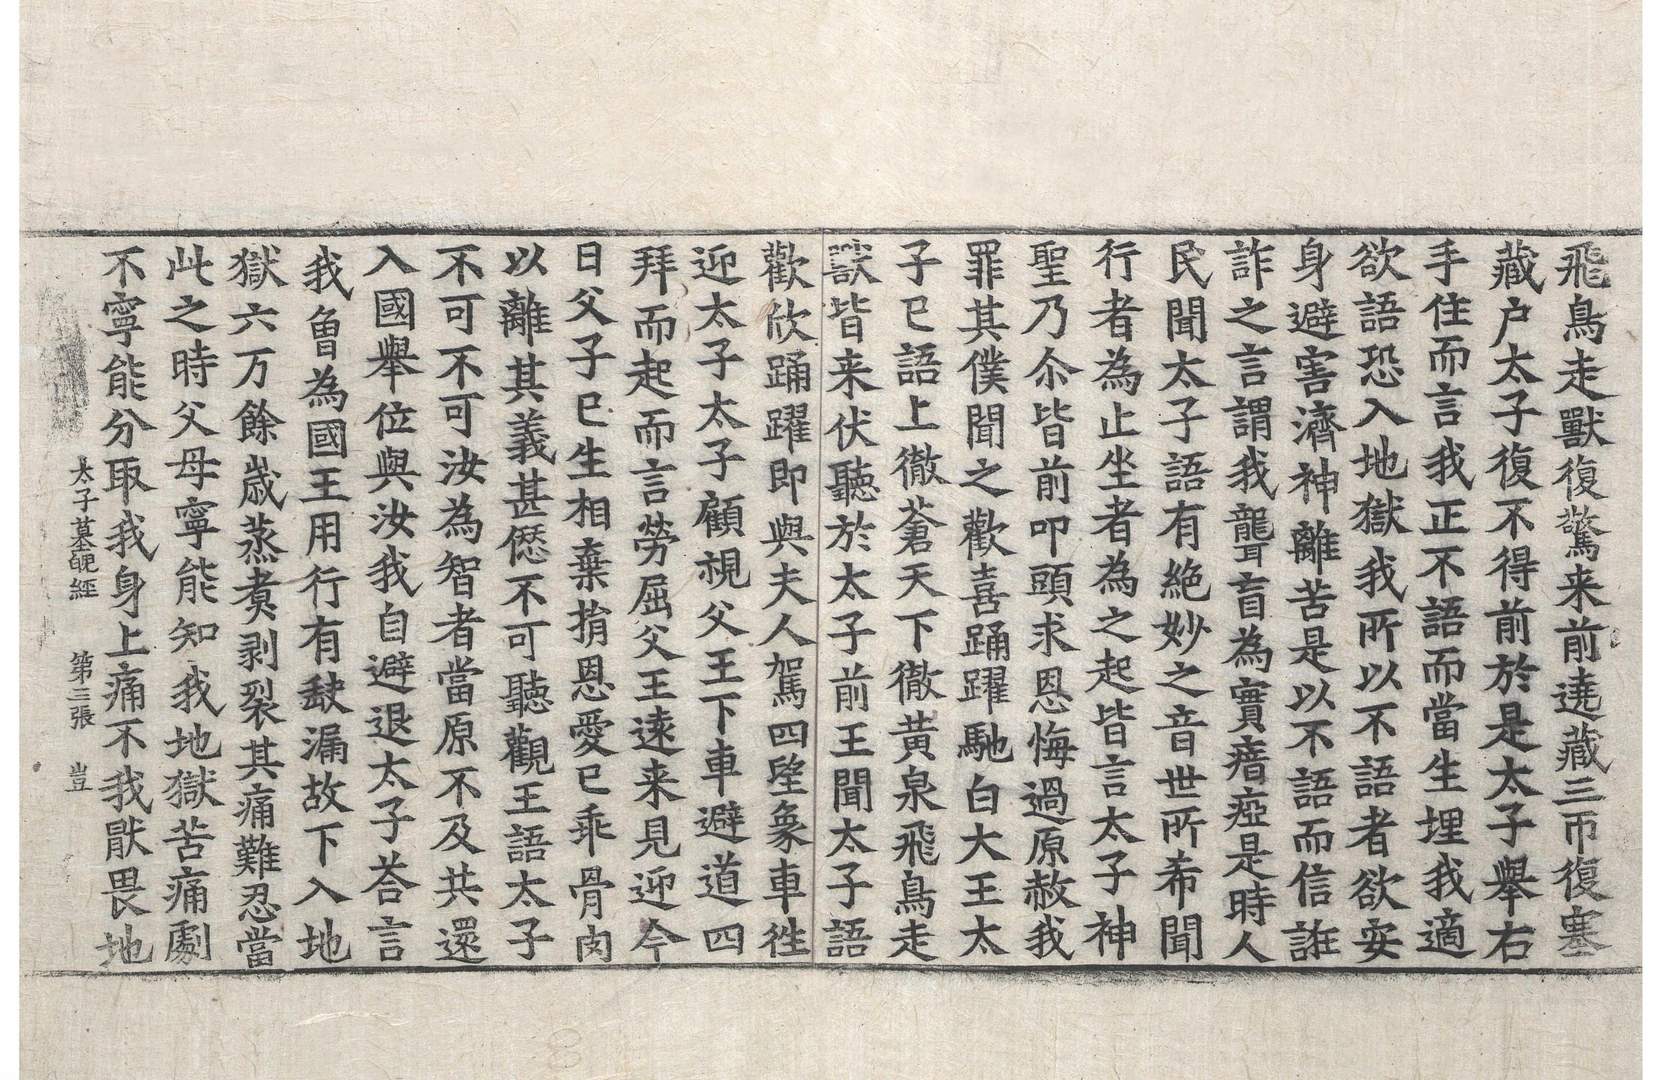 飛鳥走獸復驚来前遶藏三帀復塞
藏户太子復不得前於是太子舉右
手住而言我正不語而當生埋我適
欲語恐入地獄我所以不語者欲安
身避害濟神離苦是以不語而信誑
詐之言謂我聾盲為實瘖瘂是時人
民聞太子語有絶妙之音世所希聞
行者為止坐者為之起皆言太子神
聖乃尒皆前叩頭求恩悔過原赦我
罪其僕聞之歡喜踊躍馳白大王太
子已語上徹蒼天下徹黄泉飛鳥走
獸皆来伏聽於太子前王聞太子語
歡欣踊躍即與夫人駕四望象車往
迎太子太子顧視父王下車避道四
拜而起而言勞屈父王遠来見迎今
日父子已生相棄捐恩愛已乖骨肉
以離其義甚僁不可聽觀王語太子
不可不可汝為智者當原不及共還
入國舉位與汝我自避退太子荅言
我曽為國王用行有缺漏故下入地
獄六万餘歲蒸煑剥裂其痛難忍當
此之時父母寧能知我地獄苦痛劇
不寧能分取我身上痛不我猒畏地
太子墓魄經 第三張 豈